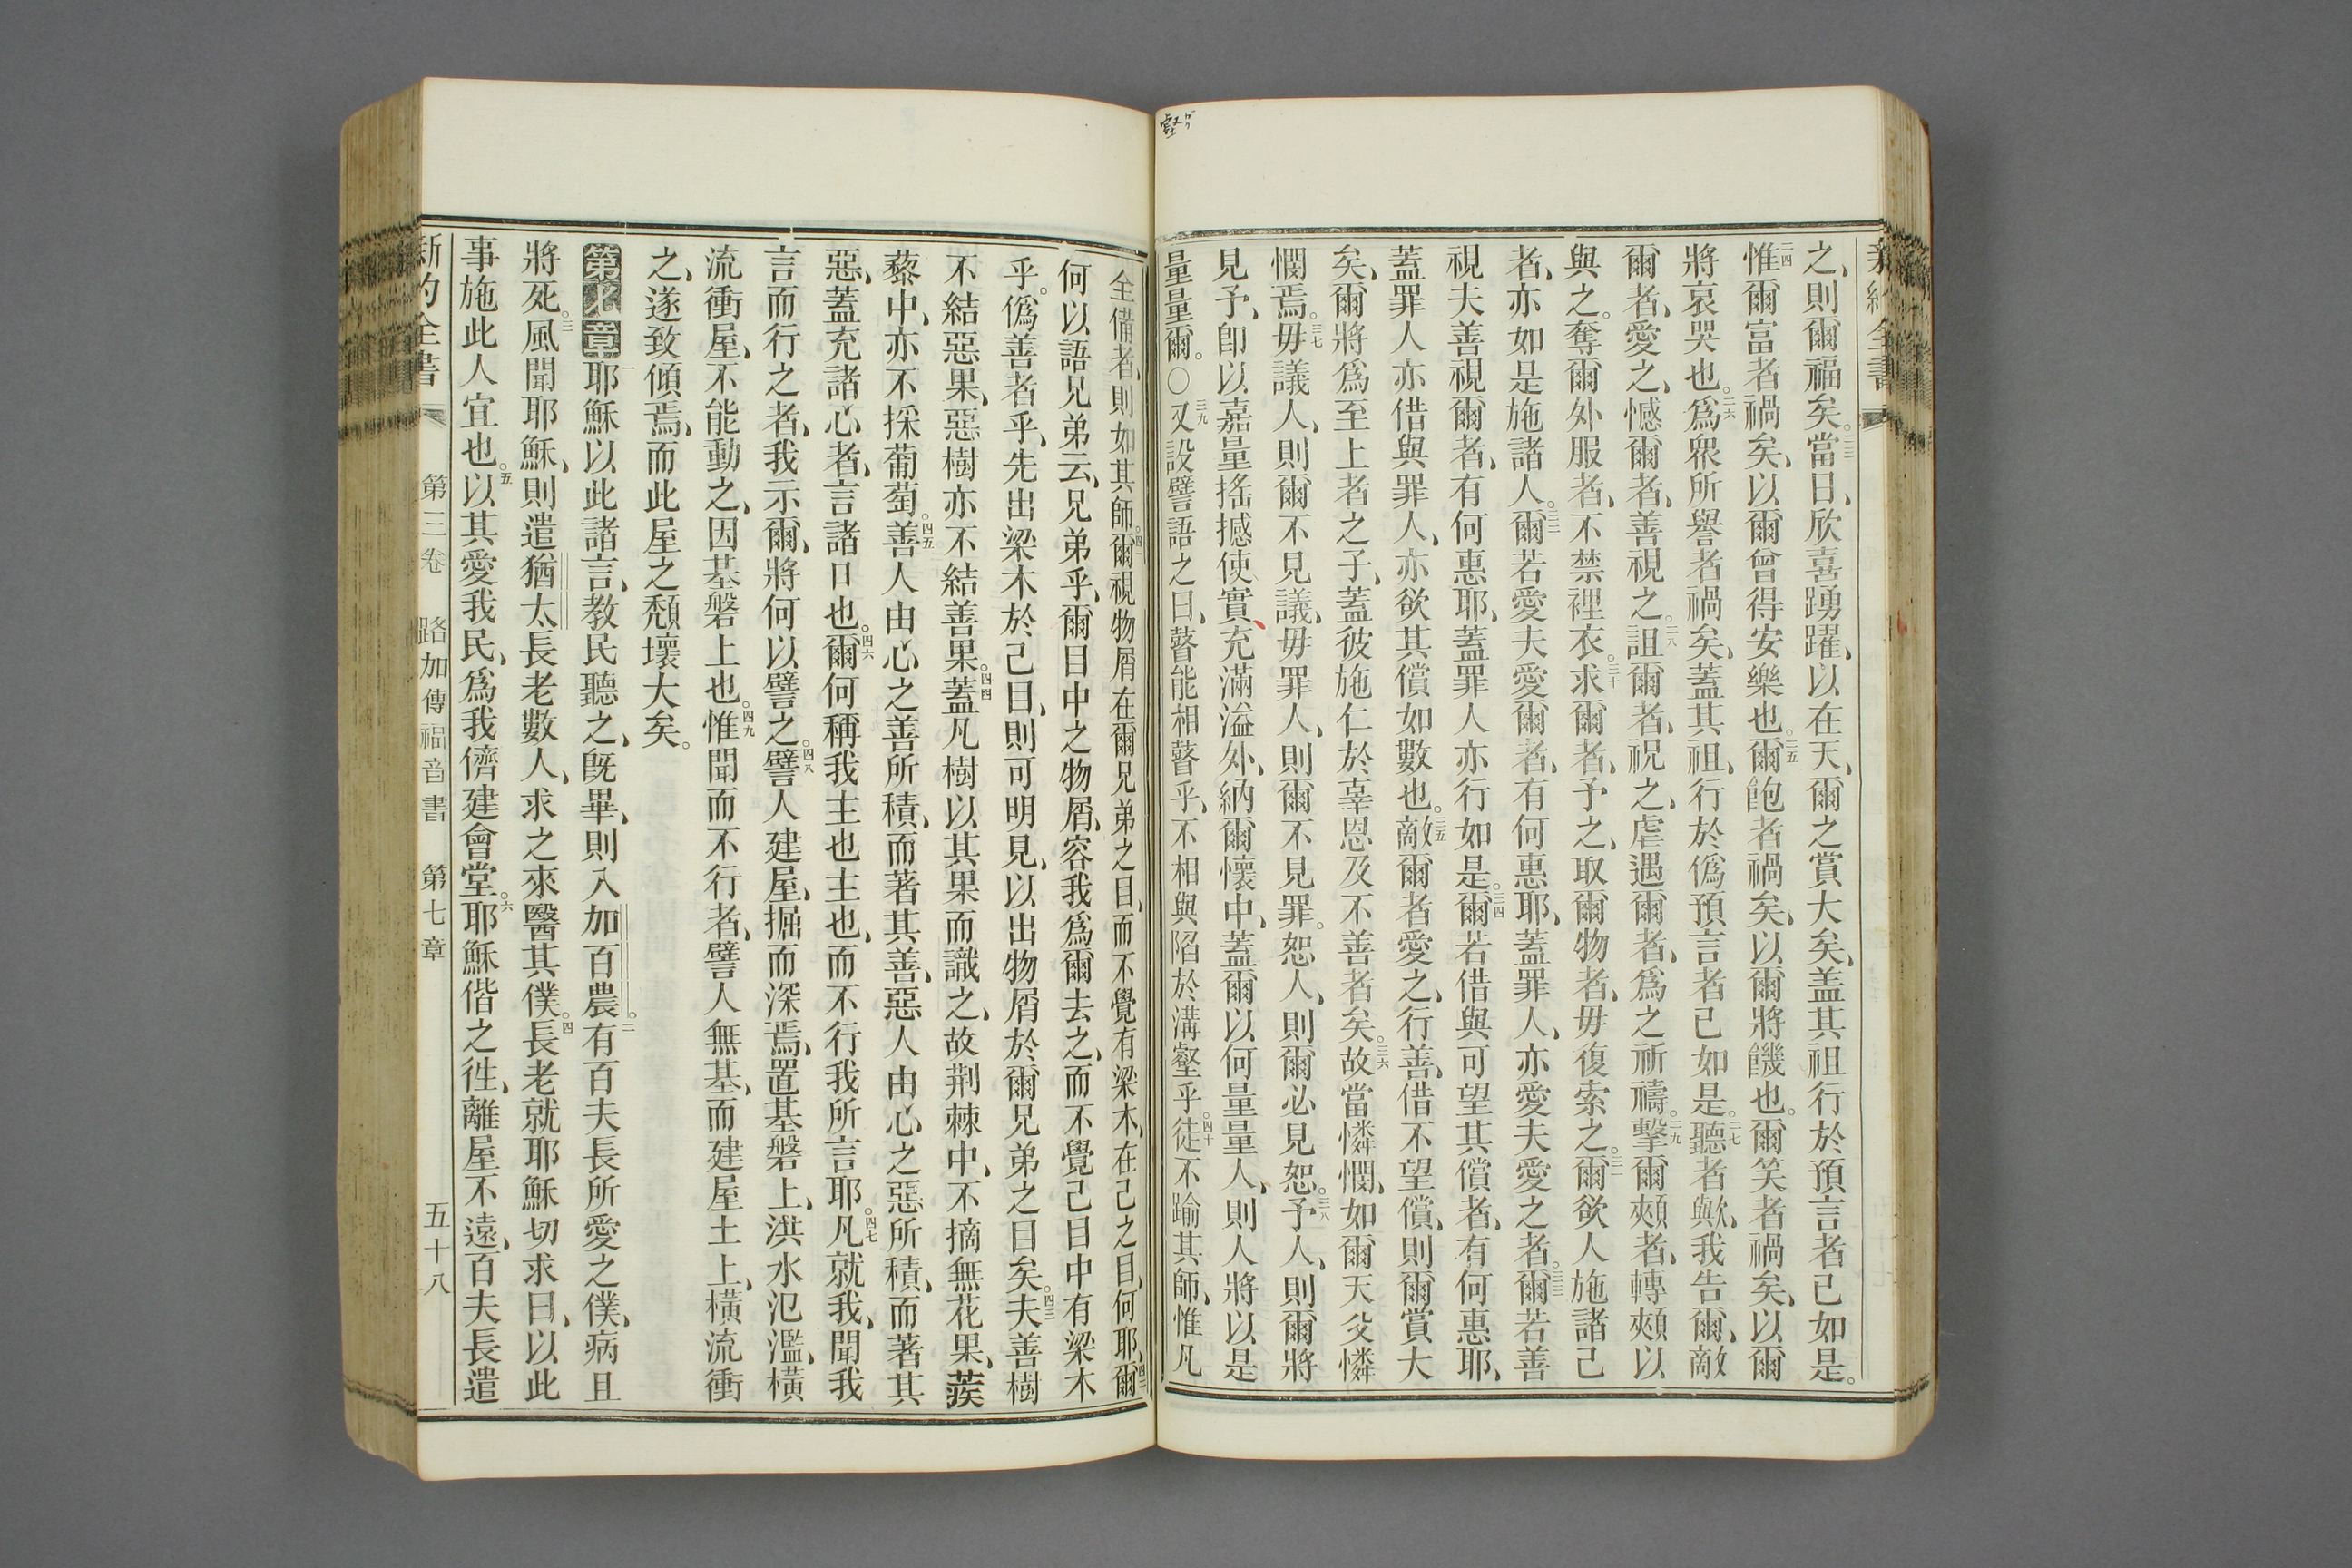 壑
新約全書
之、則爾福矣。二三當日、欣喜踴躍、以在天、爾之賞大矣、盖其祖行於預言者已如是。
二四惟爾富者禍矣、以爾曾得安樂也。二五爾飽者禍矣、以爾將饑也。爾笑者禍矣、以爾
將哀哭也。二六爲衆所譽者禍矣、蓋其祖、行於僞預言者已如是。二七聽者歟、我告爾、敵
爾者、愛之、憾爾者、善視之。二八詛爾者、祝之、虐遇爾者、爲之祈禱。二九擊爾頰者、轉頰以
與之。奪爾外服者、不禁裡衣。三十求爾者、予之、取爾物者、毋復索之。三一爾欲人施諸己
者、亦如是施諸人。三二爾若愛夫愛爾者、有何惠耶、蓋罪人、亦愛夫愛之者。三三爾若善
視夫善視爾者、有何惠耶、蓋罪人亦行如是。三四爾若借與可望其償者、有何惠耶、
蓋罪人亦借與罪人、亦欲其償如數也。三五敵爾者愛之、行善、借不望償、則爾賞大
矣、爾將爲至上者之子、蓋彼施仁於辜恩及不善者矣。三六故當憐憫、如爾天父憐
憫焉。三七毋議人、則爾不見議、毋罪人、則爾不見罪。恕人、則爾必見恕。三八予人、則爾將
見予、卽以嘉量搖撼使實、充滿溢外、納爾懷中、蓋爾以何量量人、則人將以是
量量爾。○三九又設譬語之曰、瞽能相瞽乎、不相與陷於溝壑乎。四十徒不踰其師、惟凡
全備者、則如其師。四一爾視物屑在爾兄弟之目、而不覺有梁木、在己之目、何耶、四二爾
何以語兄弟云、兄弟乎、爾目中之物屑、容我爲爾去之、而不覺己目中有梁木
乎。僞善者乎、先出梁木於己目、則可明見、以出物屑於爾兄弟之目矣。四三夫善樹
不結惡果、惡樹亦不結善果。四四蓋凡樹以其果而識之、故荆棘中、不摘無花果、蒺
藜中、亦不採葡萄。四五善人由心之善所積、而著其善、惡人由心之惡所積、而著其
惡、蓋充諸心者、言諸口也。四六爾何稱我主也主也、而不行我所言耶。四七凡就我、聞我
言而行之者、我示爾、將何以譬之。四八譬人建屋、掘而深焉、置基磐上、洪水氾濫、橫
流衝屋、不能動之、因基磐上也。四九惟聞而不行者、譬人無基、而建屋土上、橫流衝
之、遂致傾焉、而此屋之頹壞大矣。
第七章一耶穌以此諸言、教民聽之、旣畢、則入加百農。二有百夫長所愛之僕、病且
將死。三風聞耶穌、則遣猶太長老數人、求之來醫其僕。四長老就耶穌切求曰、以此
事施此人宜也。五以其愛我民、爲我儕建會堂。六耶穌偕之往、離屋不遠、百夫長遣
新約全書 第三卷 路加傳福音書 第七章 五十八